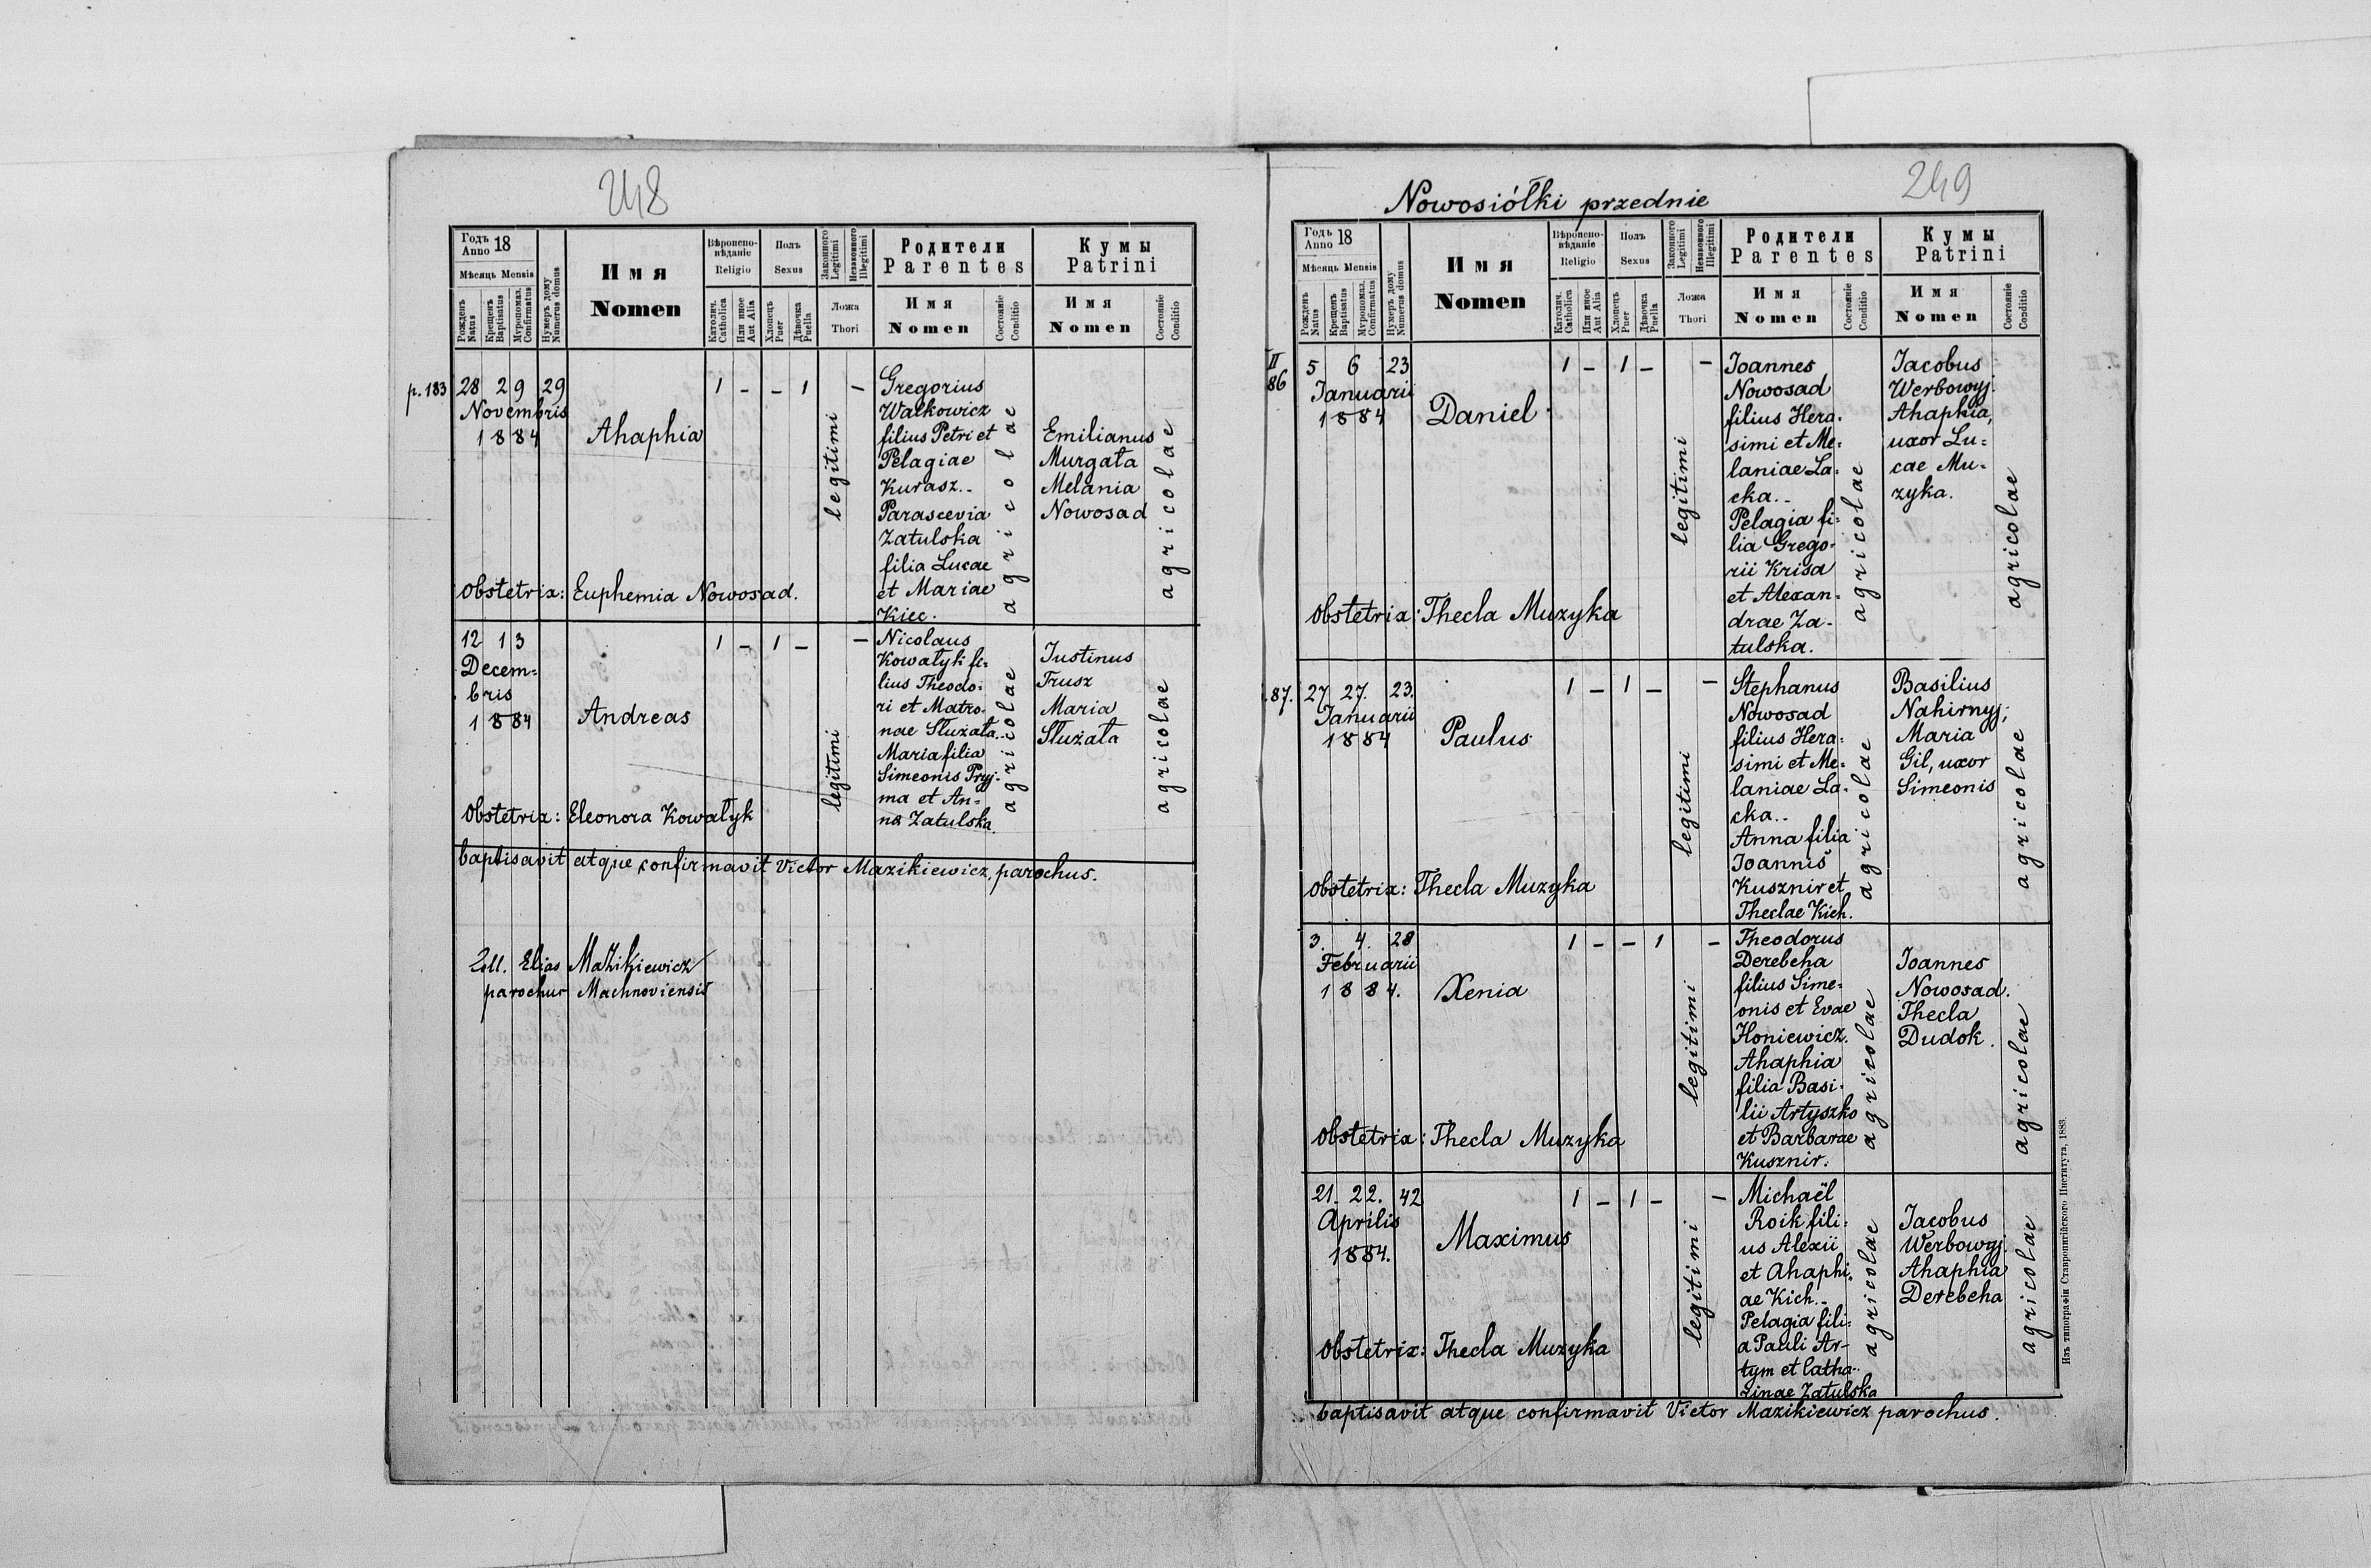 248
Годъ 18
Anno
Мѣсяць Mensis
Рожденъ Natus
Крещенъ Baptisatus
Мѵропомаз. Confirmatus
Нумеръ дому Numerus domus
Имя
Nomen
Вѣроиспо-
вѣданіе
Religio
Католич. Catholica
Или иное Aut Alia
Полъ
Sexus
Хлопецъ Puer
Дѣвочка Puella
Законного Legitimi
Незаконного Illegitimi
Ложа
Thori
Родители
Parentes
Имя
Nomen
Состояніе Conditio
Кумы
Patrini
Имя
Nomen
Состояніе Conditio
p. 183
28 29 29
Novembris
1884
Ahaphia
1 - - 1
legitimi
-
Gregorius
Walkowicz
filius Petri et
Pelagiae
Kurasz.-
Parascevia
Zatulska
filia Lucae
et Mariae
Kiec.
agricolae
Emilianus
Murgała
Melania
Nowosad
agricolae
obstetrix: Euphemia Nowosad.
12 13
Decem=
bris
1884
Andreas
1 - 1 -
legitimi
-
Nicolaus
Kowalyk fi=
lius Theodo=
ri et Matro=
nae Służała.
Maria filia
Simeonis Pryj-
ma et An=
na Zatulska
agricolae
Iustinus
Trusz
Maria
Służała
agricolae
obstetrix: Eleonora Kowalyk
baptisavit atque confirmavit Victor Mazikiewicz, parochus.
Elias Mazikiewicz
parochus Machnoviensis
249
Nowosiółki przednie
Годъ 18
Anno
Мѣсяць Mensis
Рожденъ Natus
Крещенъ Baptisatus
Мѵропомаз. Confirmatus
Нумеръ дому Numerus domus
Имя
Nomen
Вѣроиспо-
вѣданіе
Religio
Католич. Catholica
Или иное Aut Alia
Полъ
Sexus
Хлопецъ Puer
Дѣвочка Puella
Законного Legitimi
Незаконного Illegitimi
Ложа
Thori
Родители
Parentes
Имя
Nomen
Состояніе Conditio
Кумы
Patrini
Имя
Nomen
Состояніе Conditio
II
86
5 6 23
Januarii
1884
Daniel
1 - 1 -
legitimi
-
Joannes
Nowosad
filius Hera=
simi et Me=
laniae La=
cka.-
Pelagia fi=
lia Grego=
rii Krisa
et Alexan=
drae Za-
tulska.
agricolae
Jacobus
Werbowyj.
Ahaphia,
uxor Lu=
cae Mu=
zyka.
agricolae
obstetrix: Thecla Muzyka
87.
27 27. 23.
Januarii
1884
Paulus
1 - 1 -
legitimi
-
Stephanus
Nowosad
filius Hera=
simi et Me=
laniae La=
cka..
Anna filia
Joannis
Kusznir et
Theclae Kich.
agricolae
Basilius
Nahirnyj;
Maria
Gil, uxor
Simeonis
agricolae
obstetrix: Thecla Muzyka
3. 4. 28
Februarii
1884.
Xenia
1 - - 1
legitimi
-
Theodorus
Derebcha
filius Sime=
onis et Evae
Honiewicz.
Ahaphia
filia Basi=
lii Artyszko
et Barbarae
Kusznir.
agricolae
Joannes
Nowosad.
Thecla
Dudok.
agricolae
obstetrix: Thecla Muzyka
21. 22. 42
Aprilis
1884.
Maximus
1 - 1 -
legitimi
-
Michaël
Roik fili=
us Alexii
et Ahaphi=
ae Kich.-
Pelagia fili=
a Pauli Ar-
tym et Catha-
rinae Zatulska
agricolae
Jacobus
Werbowyj.
Ahaphia
Derebcha
agricolae
obstetrix: Thecla Muzyka
baptisavit atque confirmavit Victor Mazikiewicz parochus.
Изъ типографіи Ставропигійского Института, 1883.